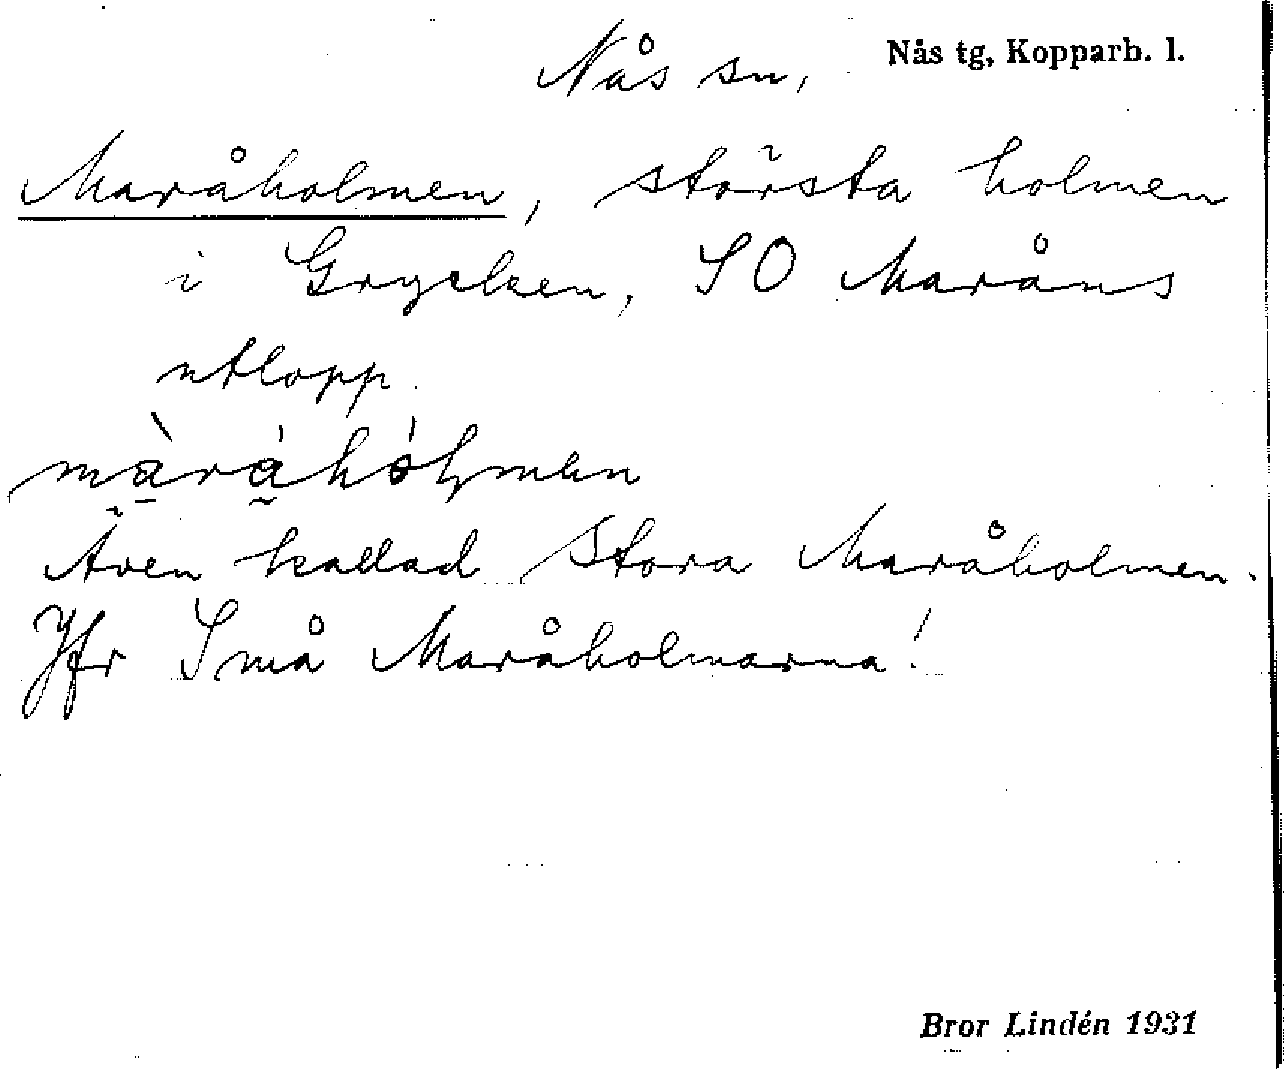 Nås sn, Nås tg, Kopparb. l.
Maråholmen, största holmen
i Grycken, SO Maråns
utlopp.
Även kallad Stora Maråholmen.
Jfr Små Maråholmarna!
Bror Lindén 1931